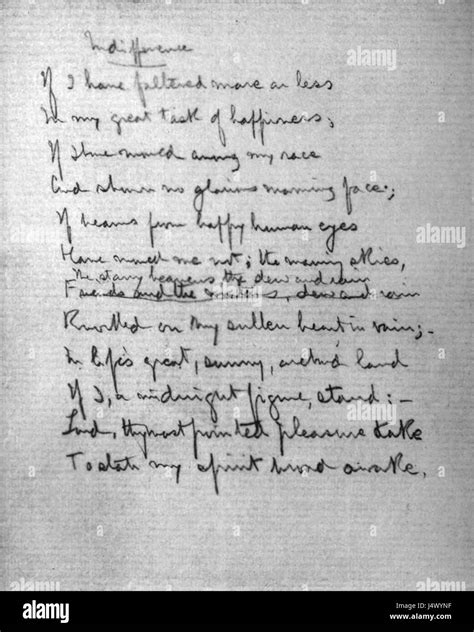 Indifference
If I have faltered more or less
In my great task of happiness;
If I have moved among my race
And shown no glorious morning face;
If beams from happy human eyes
Have moved me not; the morning skies,
The starry heavens the dew and rain
Friends and the dew and rain
on my sullen heart in vain;-
In life's great, sunny, land
If I, a midnight figure, stand:-
Lord, thy most pointed pleasure take
To stab my spirit broad awake.
alamy
alamy
alamy
alamy
alamy
Image ID: J4WYNF
www.alamy.com